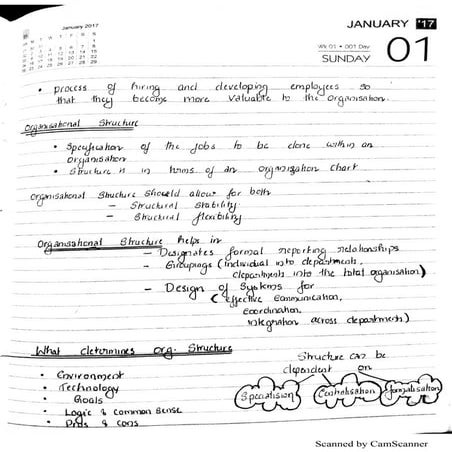 January 2017
JANUARY '17
Wk 01 • 001 Day
SUNDAY 01
• process of hiring and developing employees so
that they become more valuable to the organisation.
Organisational Structure
• Specification of the jobs to be done within an
organisation
• Structure is in terms of an organization chart
Organisational Structure should allow for both
- Structural stability.
- Structural flexibility
Organisational Structure helps in
- Designates formal reporting relationships
- Groupings (Individual into departments,
departments into the total organisation)
- Design of Systems for
(effective communication,
coordination,
integration across departments)
What determines org. Structure
• Environment
• Technology
• Goals
• Logic & Common Sense
• Pros & cons
Structure can be
dependent on
Specialision Centralisation formalisation
Scanned by CamScanner